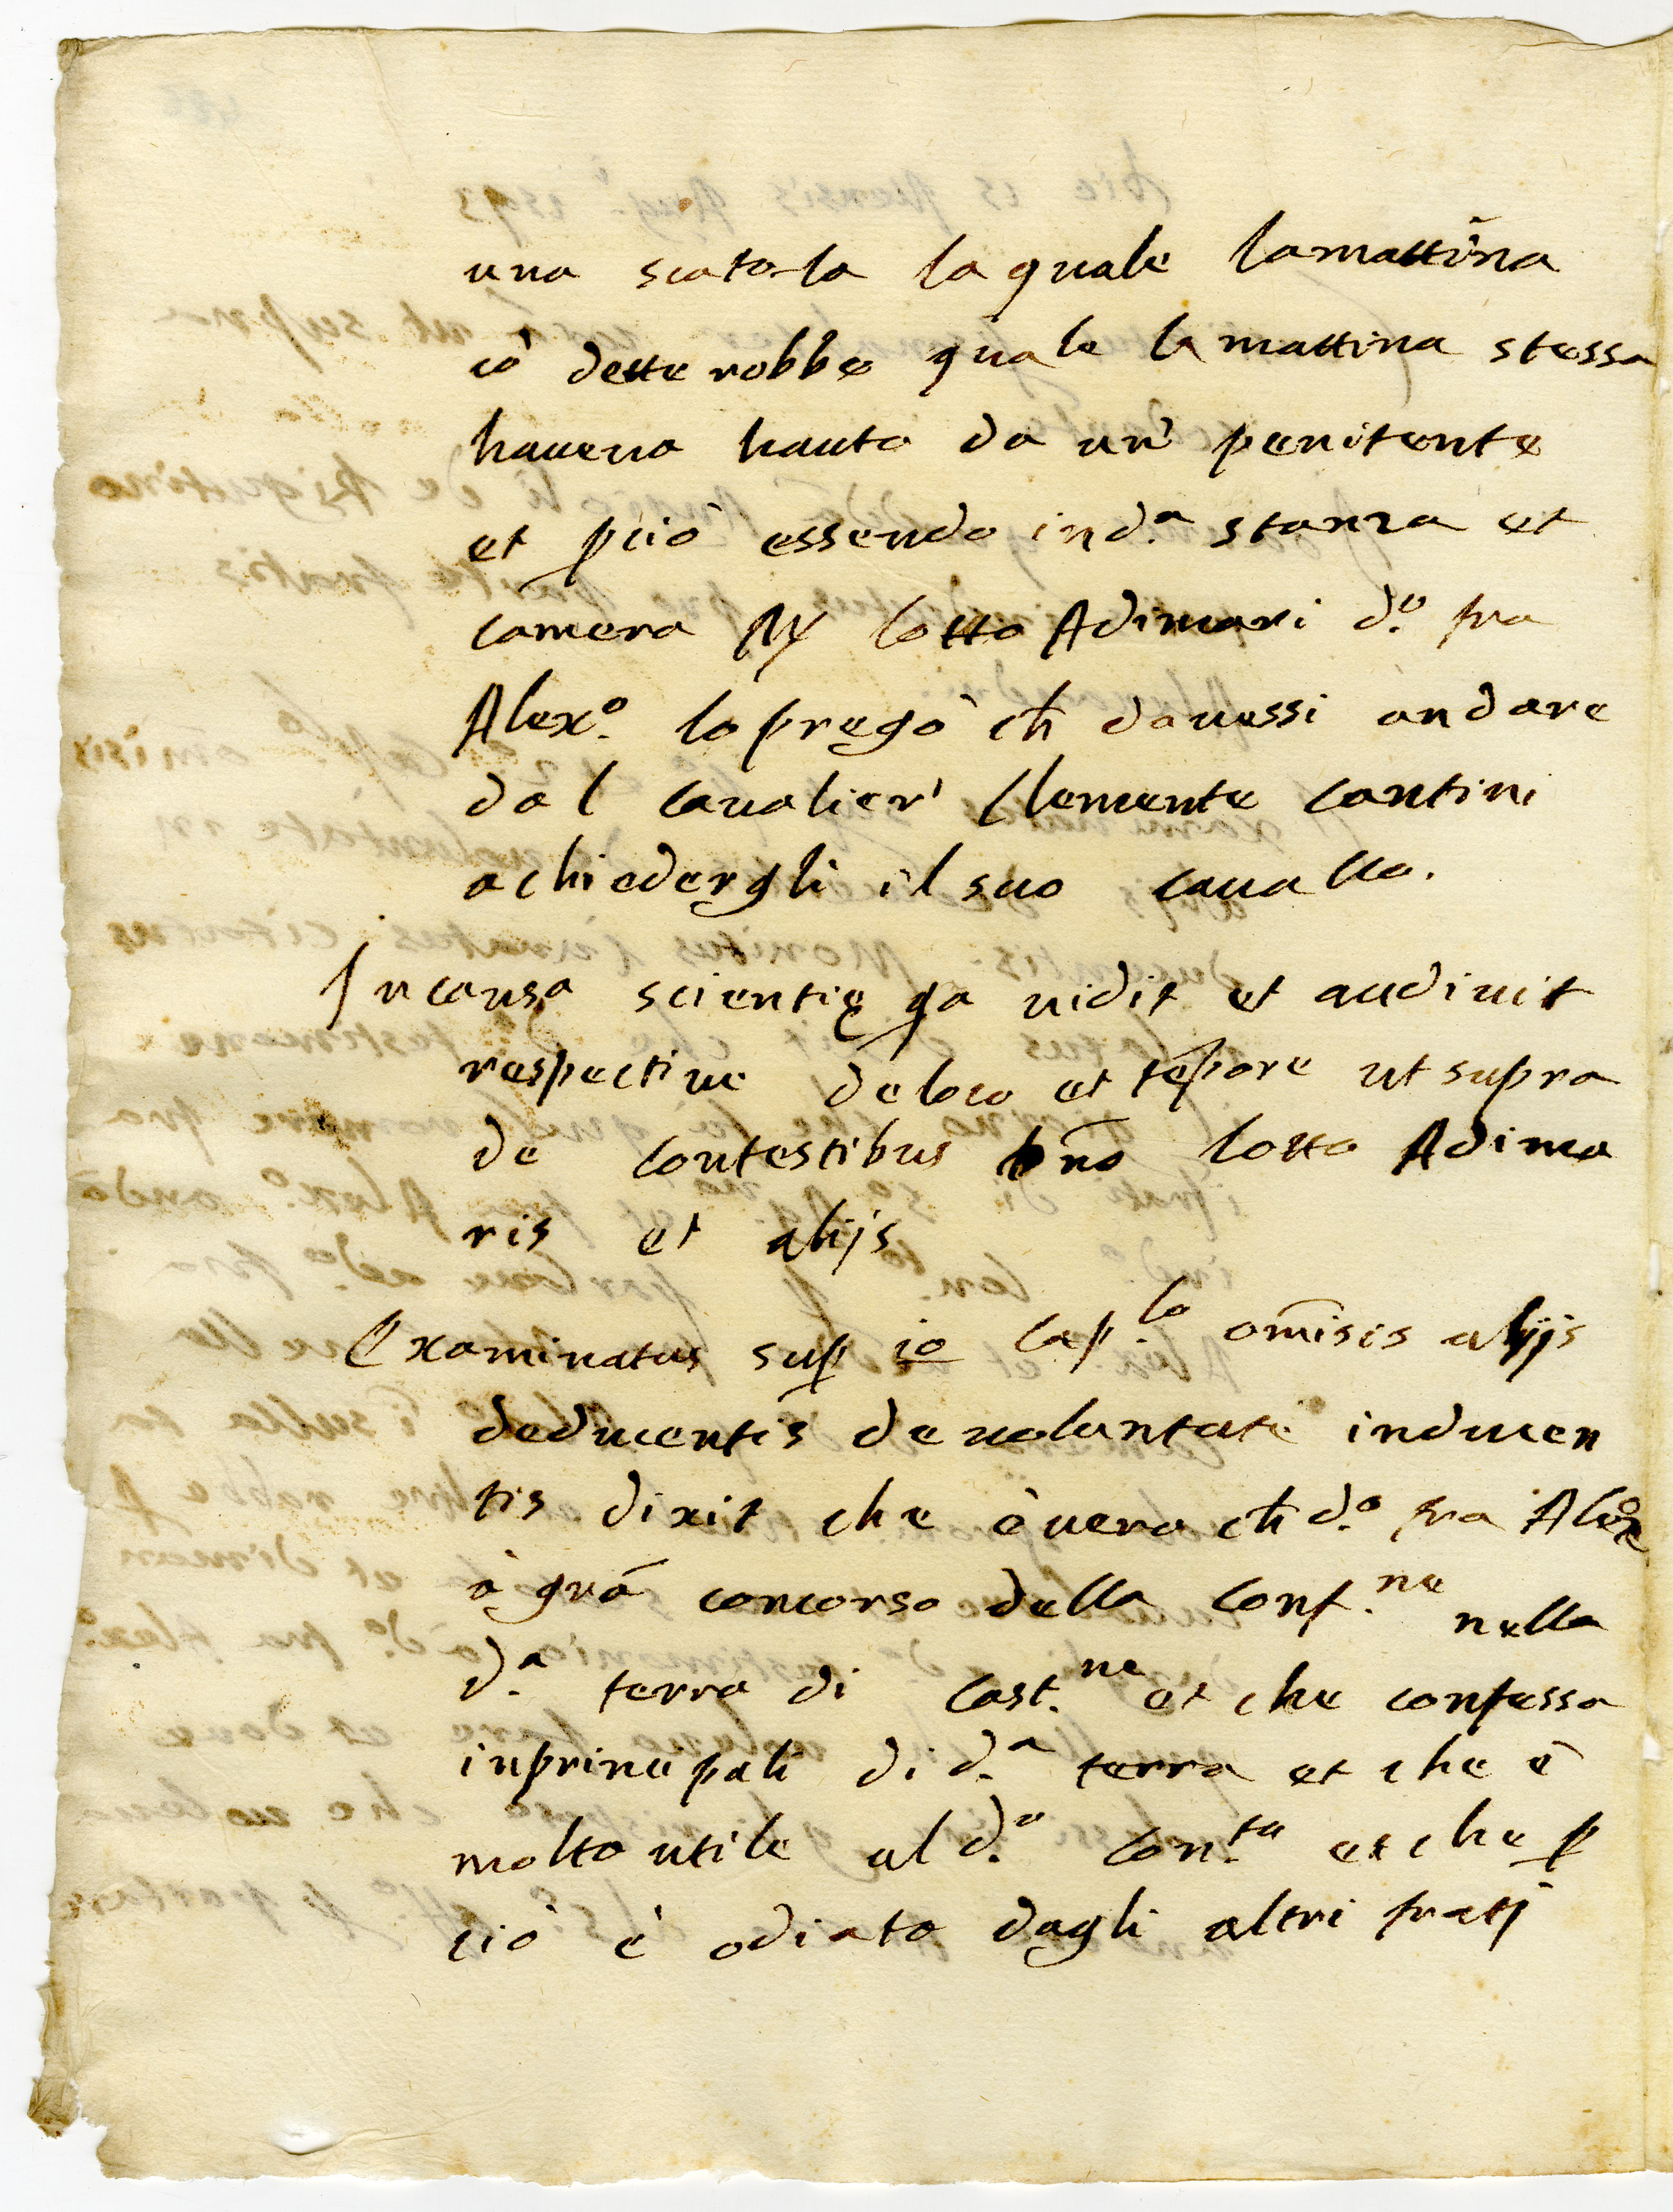 una scatola la quale la mattina
cō dette robbe quale la mattina stessa
haueua hauto da un' penitente
et ꝑciò essendo in d.ª stanza et
camera Lotto Adimari d.º fra
Alex.º lo pregò ch̄ douessi andare
dal caualier' Clemente Contini
a chiedergli il suo cauallo.
In causa scientię qa uidit et audiuit
respectiue de loco et tēpore ut supra
de contestibus Lotto Adima
ris et alijs
Examinatus suꝑ io Cap.lo omīsis alijs
deducentis de uoluntate inducen
tis dixit che è uero ch̄ d.º fra Alex.º
à grā concorso della Conf.ne nella
d.ª terra di Cast.ne et che confessa
i principali di d.ª terra et che è
molto utile al d.º Con.to et che ꝑ
ciò è odiato dagli altri frati